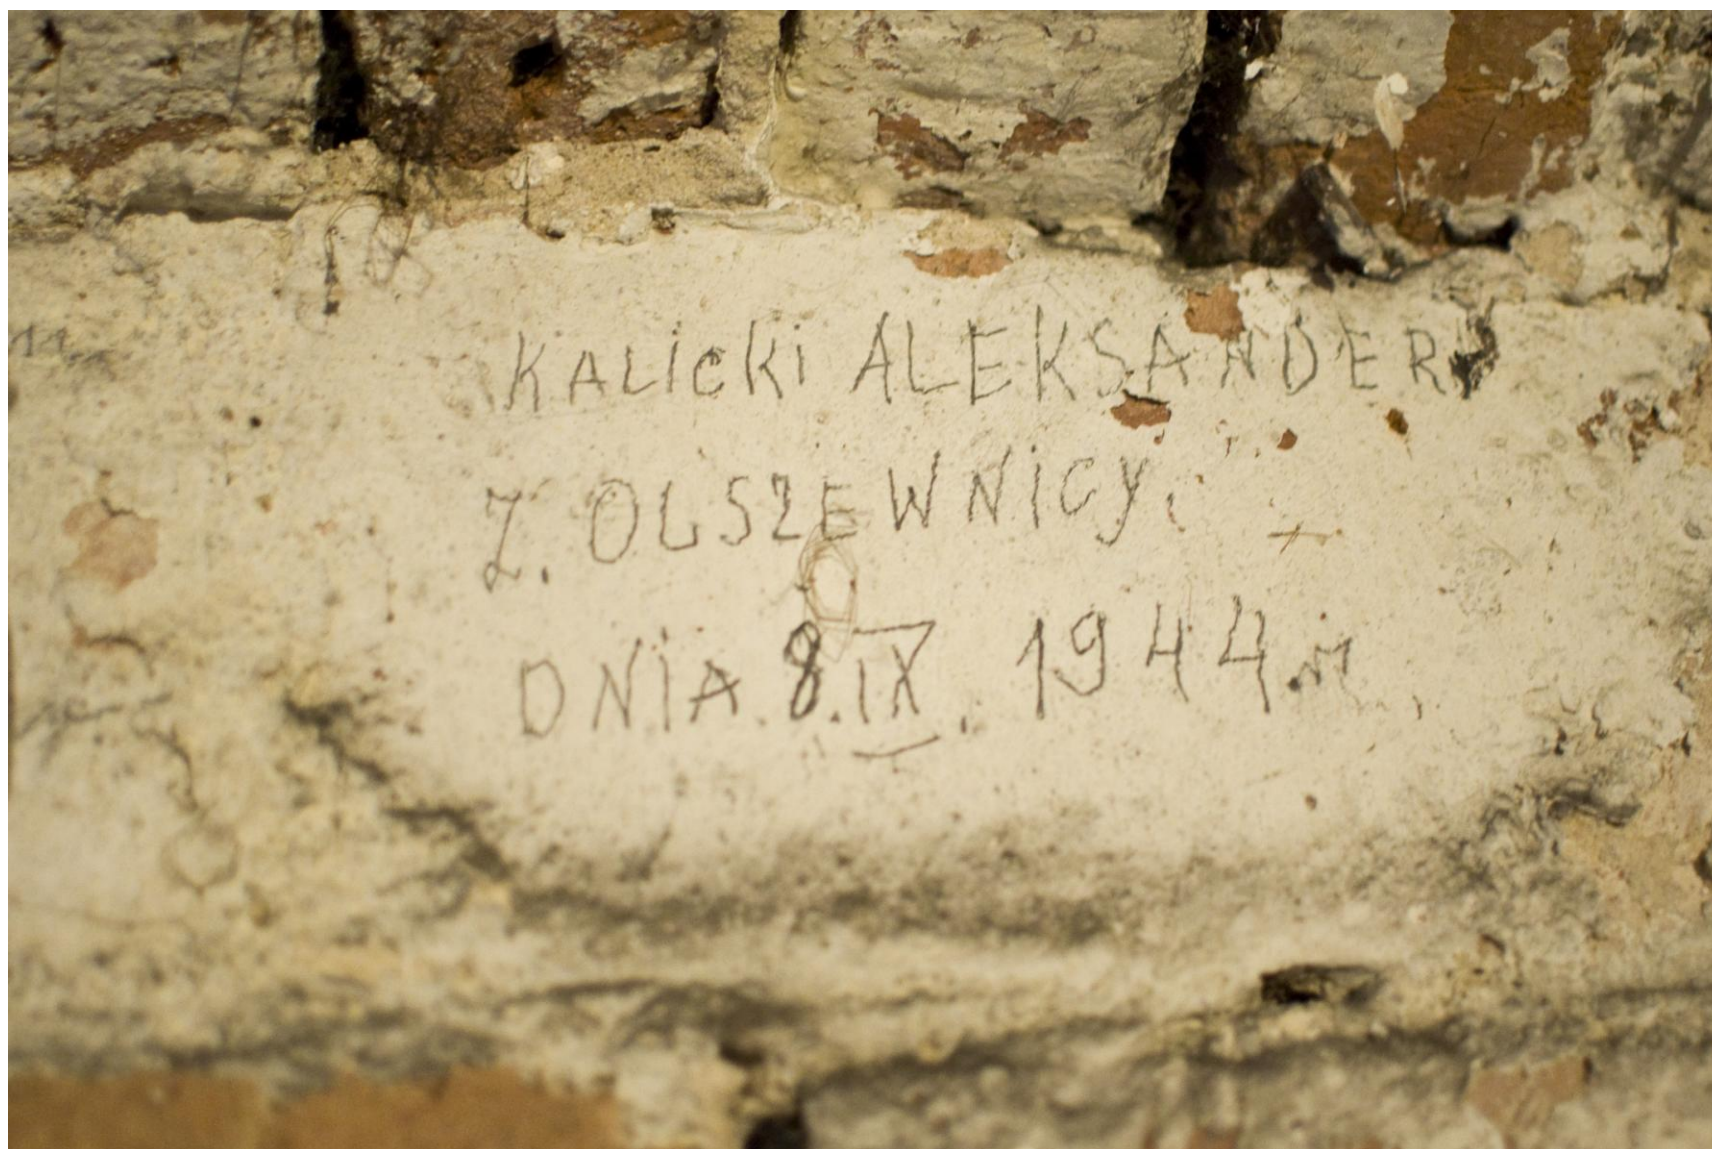 KALiCKi ALEKSANDER
Z. OLSZEWNiCY.
DNiA. 8.IX. 1944.r